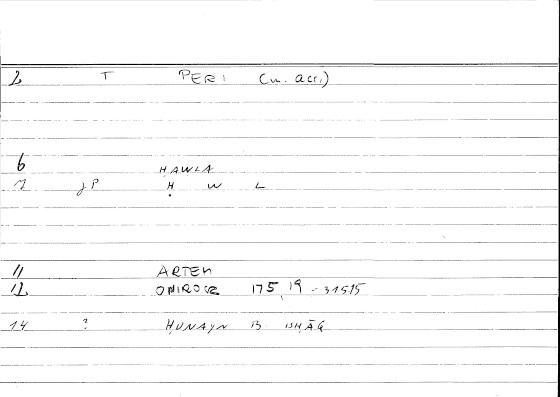 2 T PERI (w. acc.)
6 ḤAWLA
7 JP Ḥ W L
11 ARTEM
12 ONIROCR 175,19 - 315,15
14 ? ḤUNAYN B ISḤĀQ